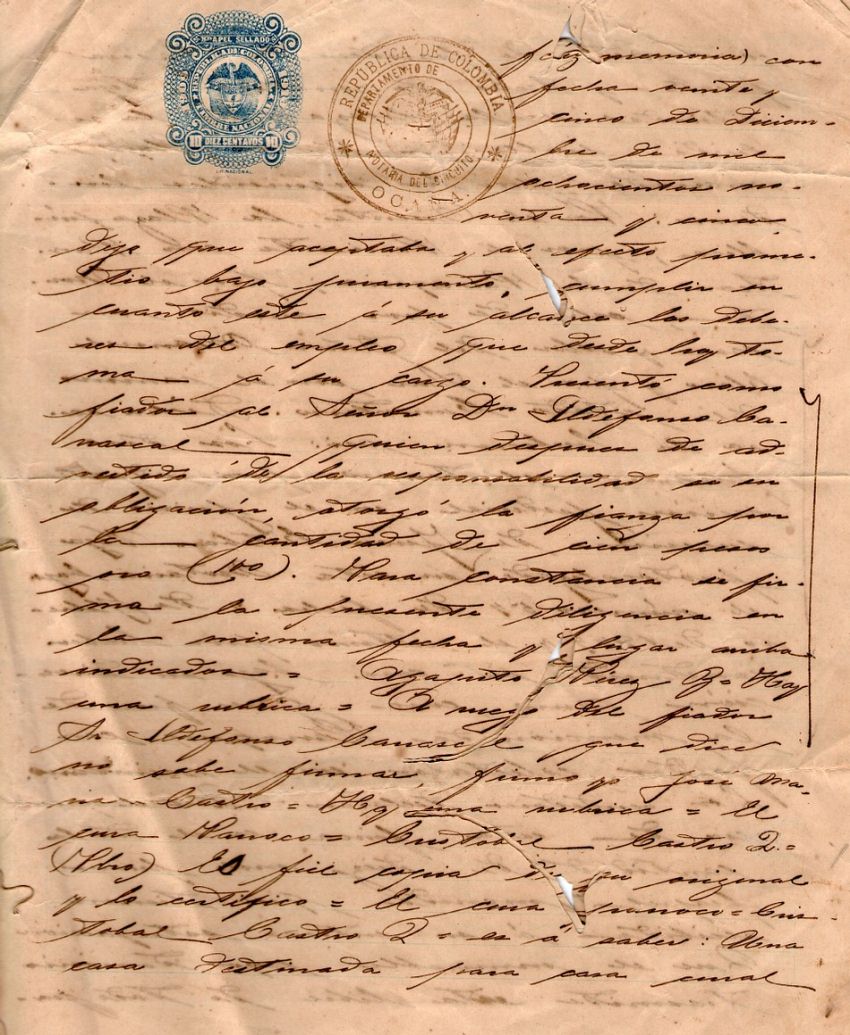 PAPEL SELLADO
DIEZ CENTAVOS
REPUBLICA DE COLOMBIA
DEPARTAMENTO DE
NOTARIA DEL CIRCUITO
OCAÑA
feliz memoria) con
fecha veinte y
cinco de Diciem-
bre de mil
ochocientos no-
venta y cinco,
Dijo que aceptaba y al efecto prome-
tio bajo juramento, cumplir en
cuanto este á su alcance los debe-
res del empleo que desde hoy to-
ma á su cargo. Presentó como
fiador al Señor Dn Ildefonso Ca-
rrascal quien despues de ad-
vertido de la responsabilidad se su
obligación, otorgó la fianza por
la cantidad de cien pesos
oro (100). Para constancia se fir-
ma la presente diligencia en
la misma fecha y lugar arriba
indicados = Agapito Perez P = Hay
una rubrica = A ruego del fiador
Sr. Ildefonso Carrascal que dice
no sabe firmar, firmo yo José Ma-
ria Castro = Hay una rubrica = El
cura Parroco = Cristobal Castro Q. =
(Pbro) Es fiel copia de su original
y lo certifico = El cura parroco = Cris-
tobal Castro Q = es á saber: Una
casa destinada para casa cural